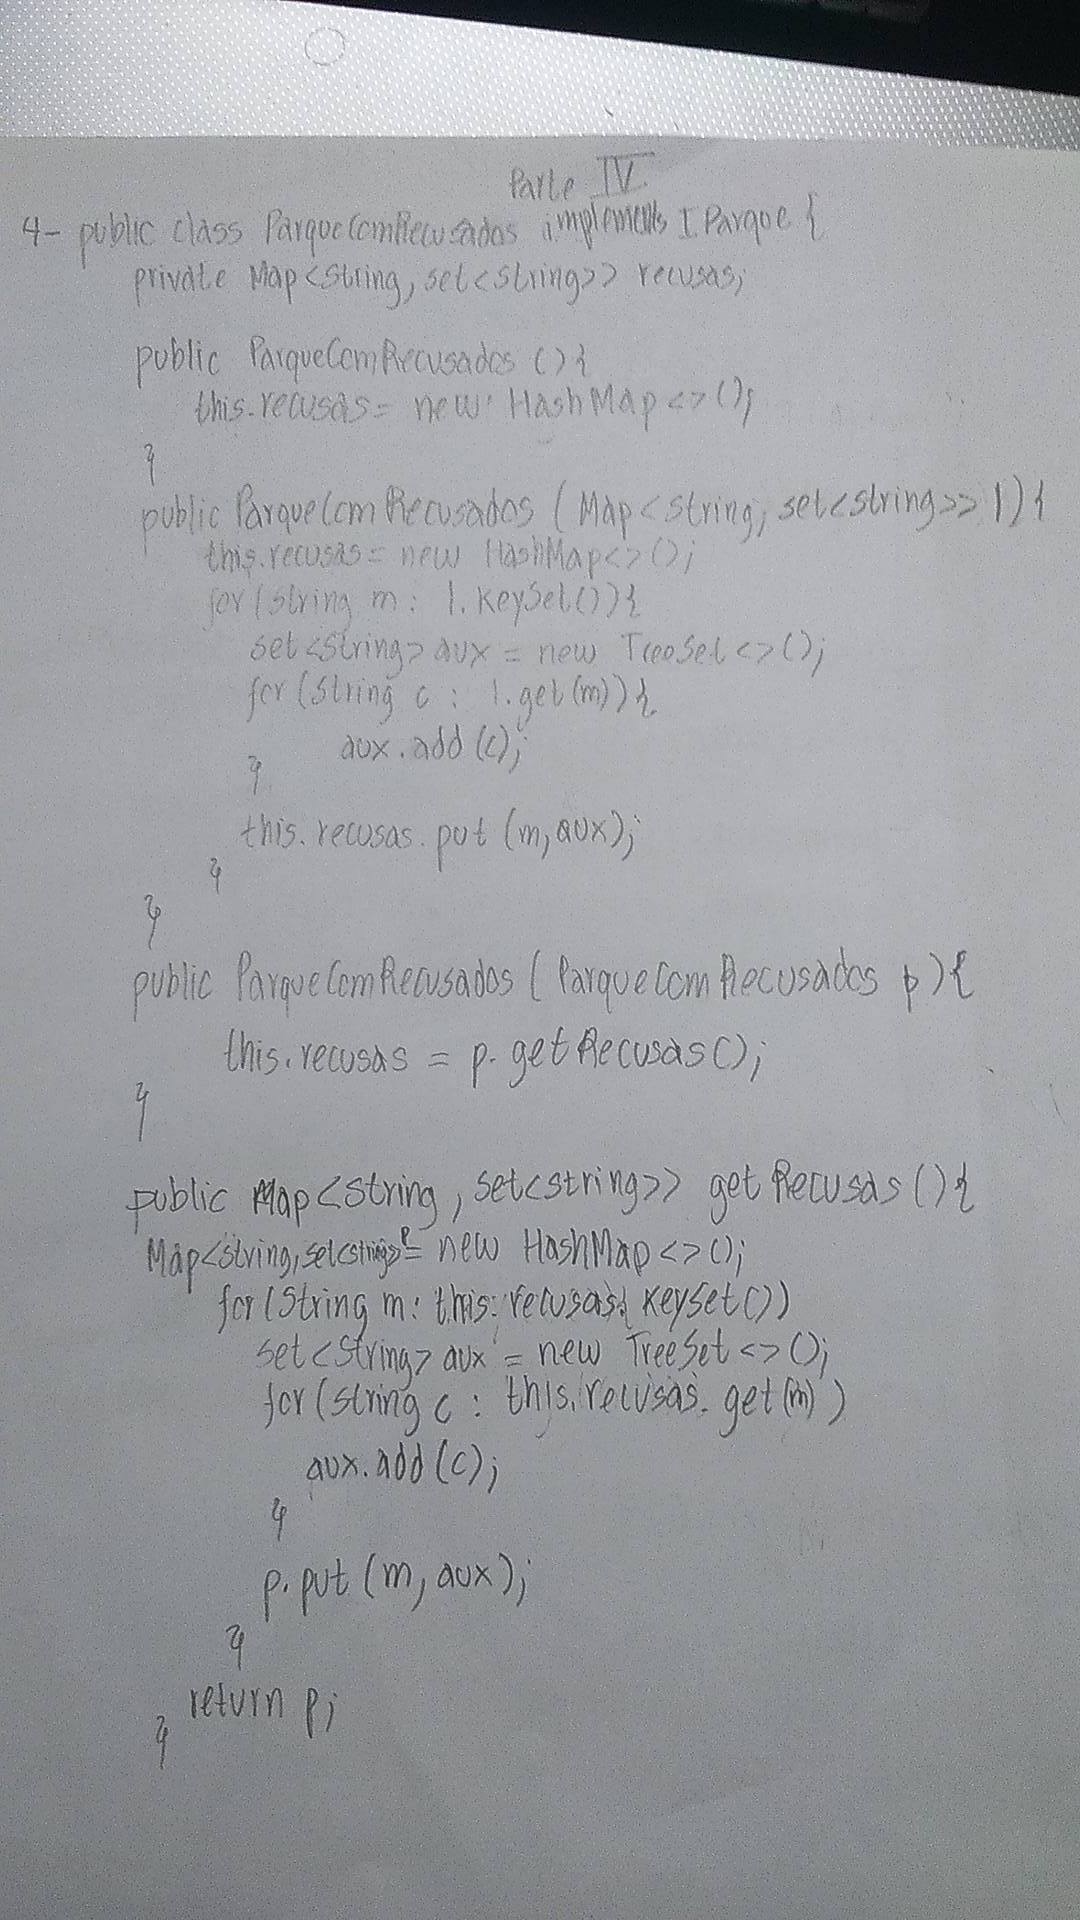 Parte IV
4- public class ParqueComRecusados implements IParque {
private Map<String, set<string>> recusas;
public ParqueComRecusados () {
this.recusas = new HashMap<>();
}
public ParqueComRecusados (Map<string, set<string>> l) {
this.recusas = new HashMap<>();
for (string m : l.KeySet()) {
set<String> aux = new TreeSet<>();
for (String c : l.get(m)) {
aux.add(c);
}
this.recusas.put (m, aux);
}
}
public ParqueComRecusados (ParqueComRecusados p) {
this.recusas = p.getRecusas();
}
public Map<string, set<string>> getRecusas () {
Map<string, set<string>> p = new HashMap<>();
for (String m : this.recusas. KeySet())
set<String> aux = new TreeSet<>();
for (string c : this.recusas.get(m))
aux.add(c);
}
p.put (m, aux);
}
return p;
}